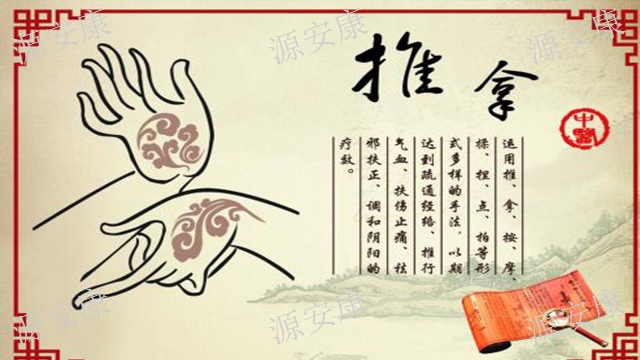 推拿
中醫
运用推、拿、按、摩、
揉、捏、点、拍等形
式多样的手法,以期
达到疏通经络、推行
气血、扶伤止痛、祛
邪扶正、调和阴阳的
疗效。
源安康
源安康
源安康
源安康
源安康
源安康